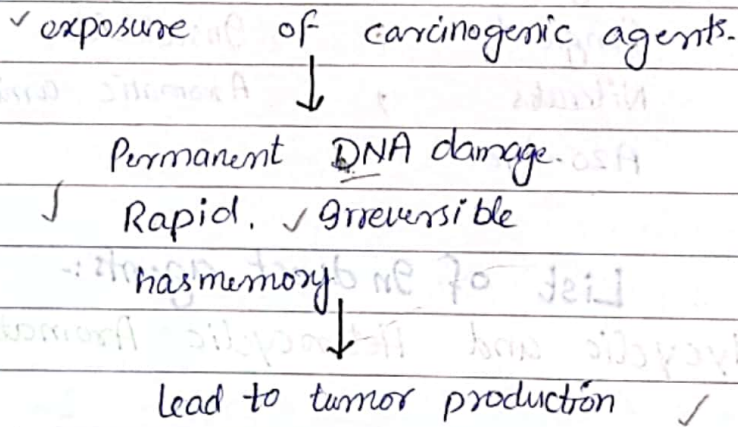 ✓ exposure of carcinogenic agents.
↓
Permanent DNA damage.
Rapid. ✓ Irreversible
has memory
↓
lead to tumor production ✓